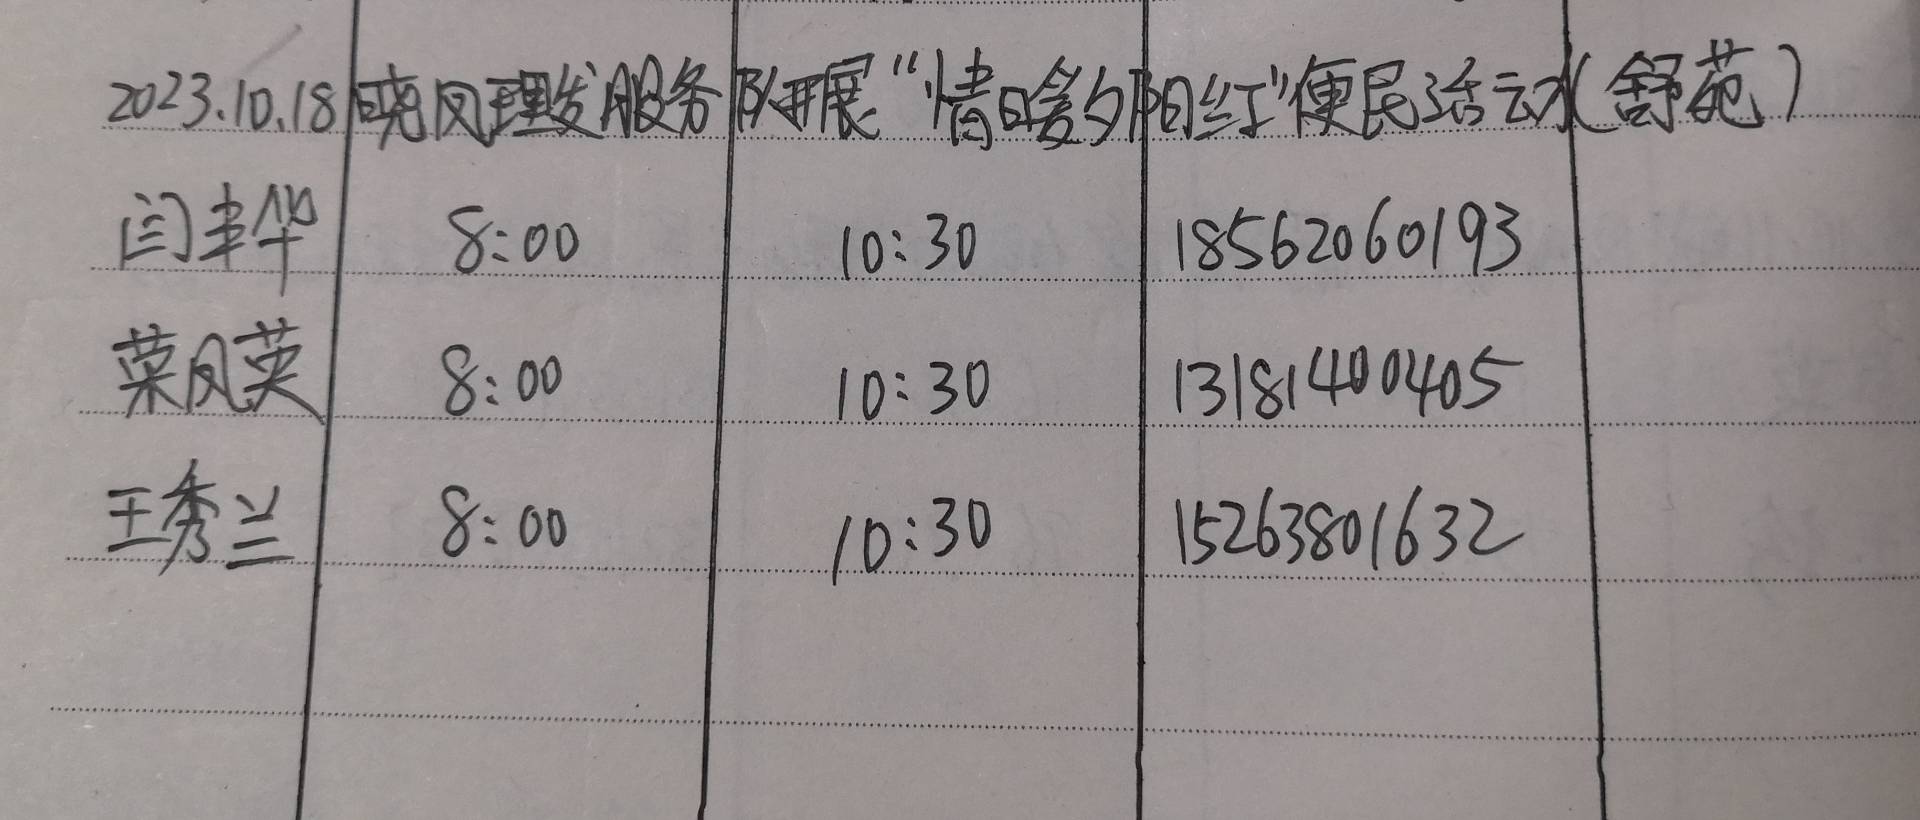 2023.10.18 晓风理发服务队开展“情暖夕阳红”便民活动(舒苑)
闫丰华 8:00 10:30 18562060193
菜风英 8:00 10:30 13181400405
王秀兰 8:00 10:30 15263801632